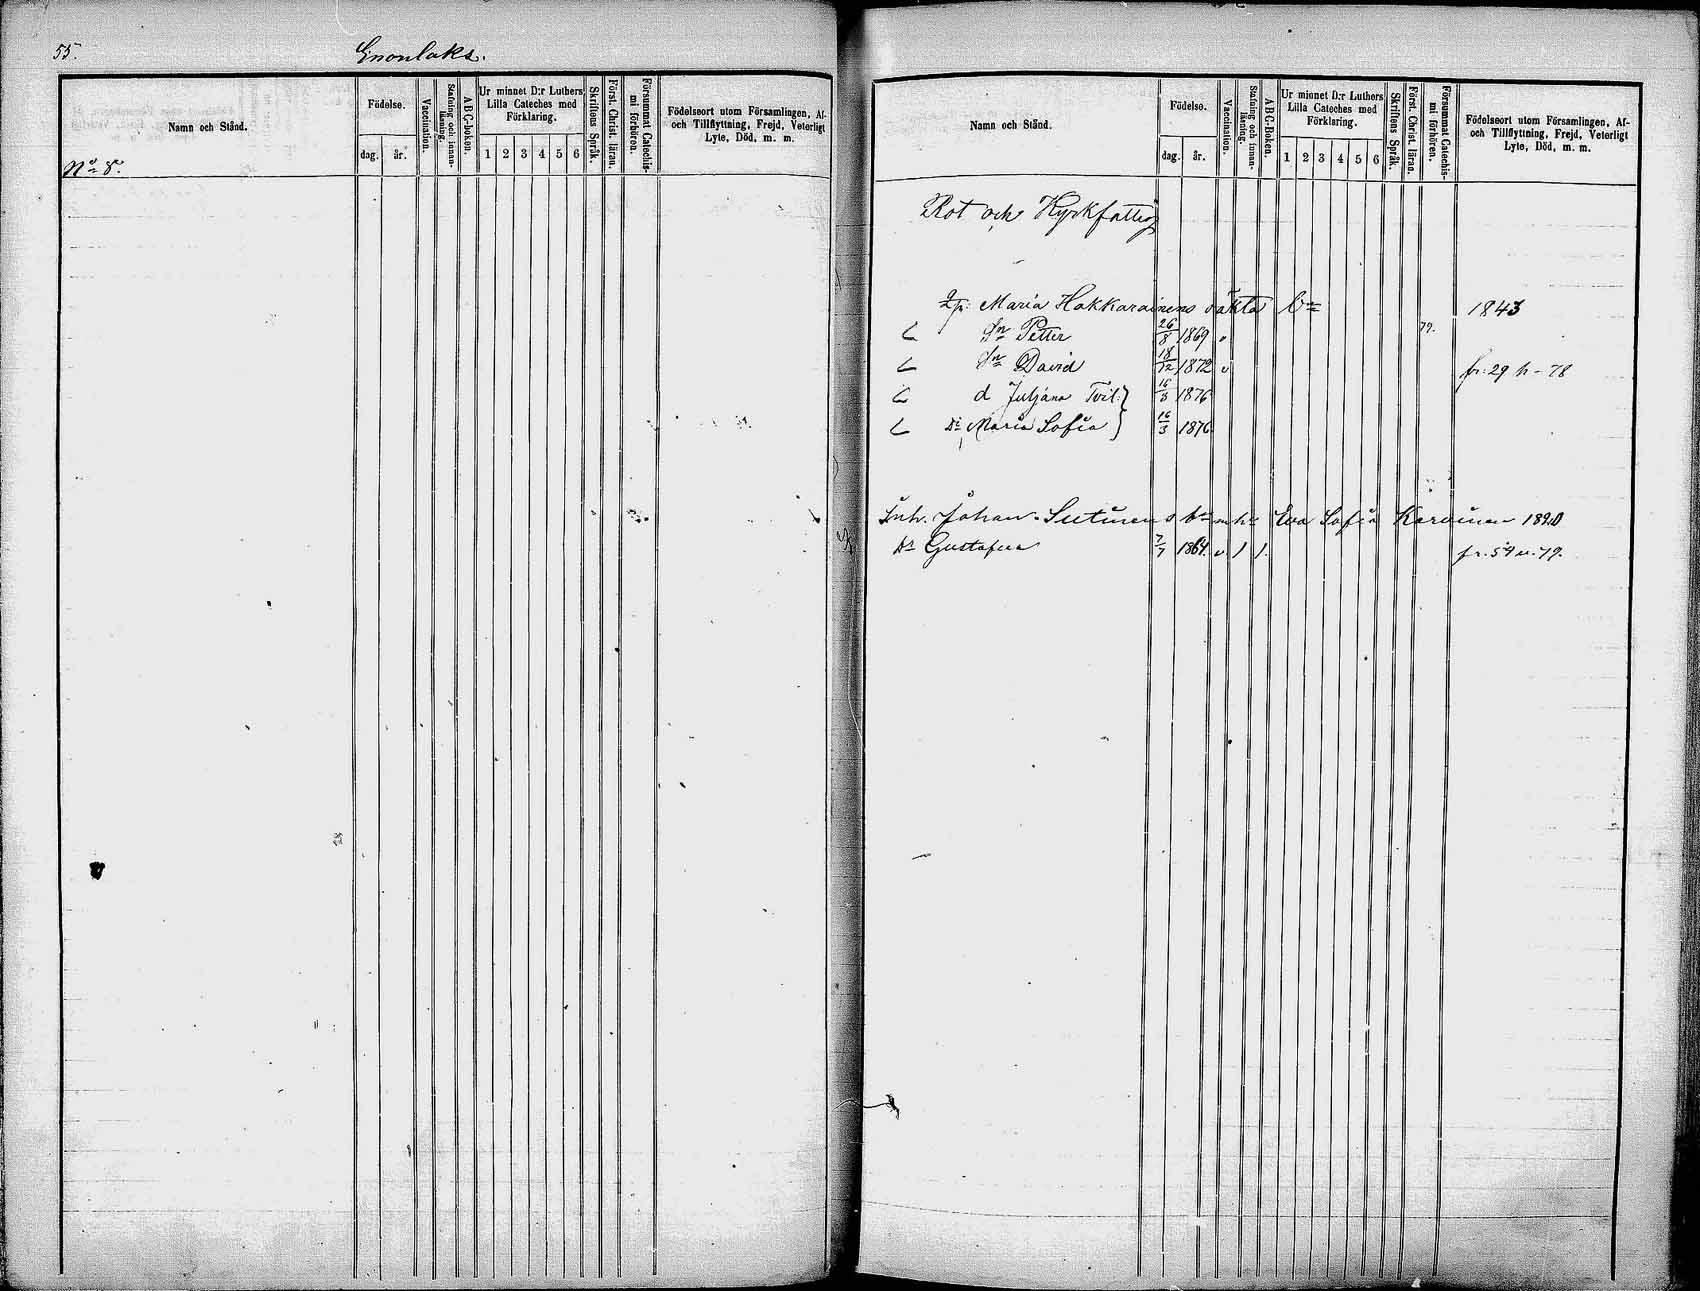 55.
Enonlaks.
Namn och Stånd.
Födelse.
dag. år.
Vaccination.
Stafning och innanläsning.
ABC-boken.
Ur minnet D:r Luthers
Lilla Cateches med
Förklaring.
1 2 3 4 5 6
Skriftens Språk.
Först. Christ. läran.
Försummat Catechis-
mi förhören.
Födelseort utom Församlingen, Af-
och Tillflyttning, Frejd, Veterligt
Lyte, Död, m. m.
No 8.
Namn och Stånd.
Födelse.
dag. år.
Vaccination.
Stafning och innanläsning.
ABC-Boken.
Ur minnet D:r Luthers
Lilla Cateches med
Förklaring.
1 2 3 4 5 6
Skriftens Språk.
Först. Christ. läran.
Försummat Catechis-
mi förhören.
Födelseort utom Församlingen, Af-
och Tillflyttning, Frejd, Veterligt
Lyte, Död, m. m.
Rot och Kyrkfattig
Maria Hakkarainens oäkta bn 1843
Sn Petter 26/8 1869 v 79.
Sn David 18/12 1872 v fr: 29 h - 78
d Juljana Tvil: } 16/3 1876
Dr Maria Sofia } 16/3 1876
Inh. Johan Sutinens bn m hu Eva Sofia Karvinen
Dr Gustafva 7/7 1864. v / /. fr. 59 u. 79.